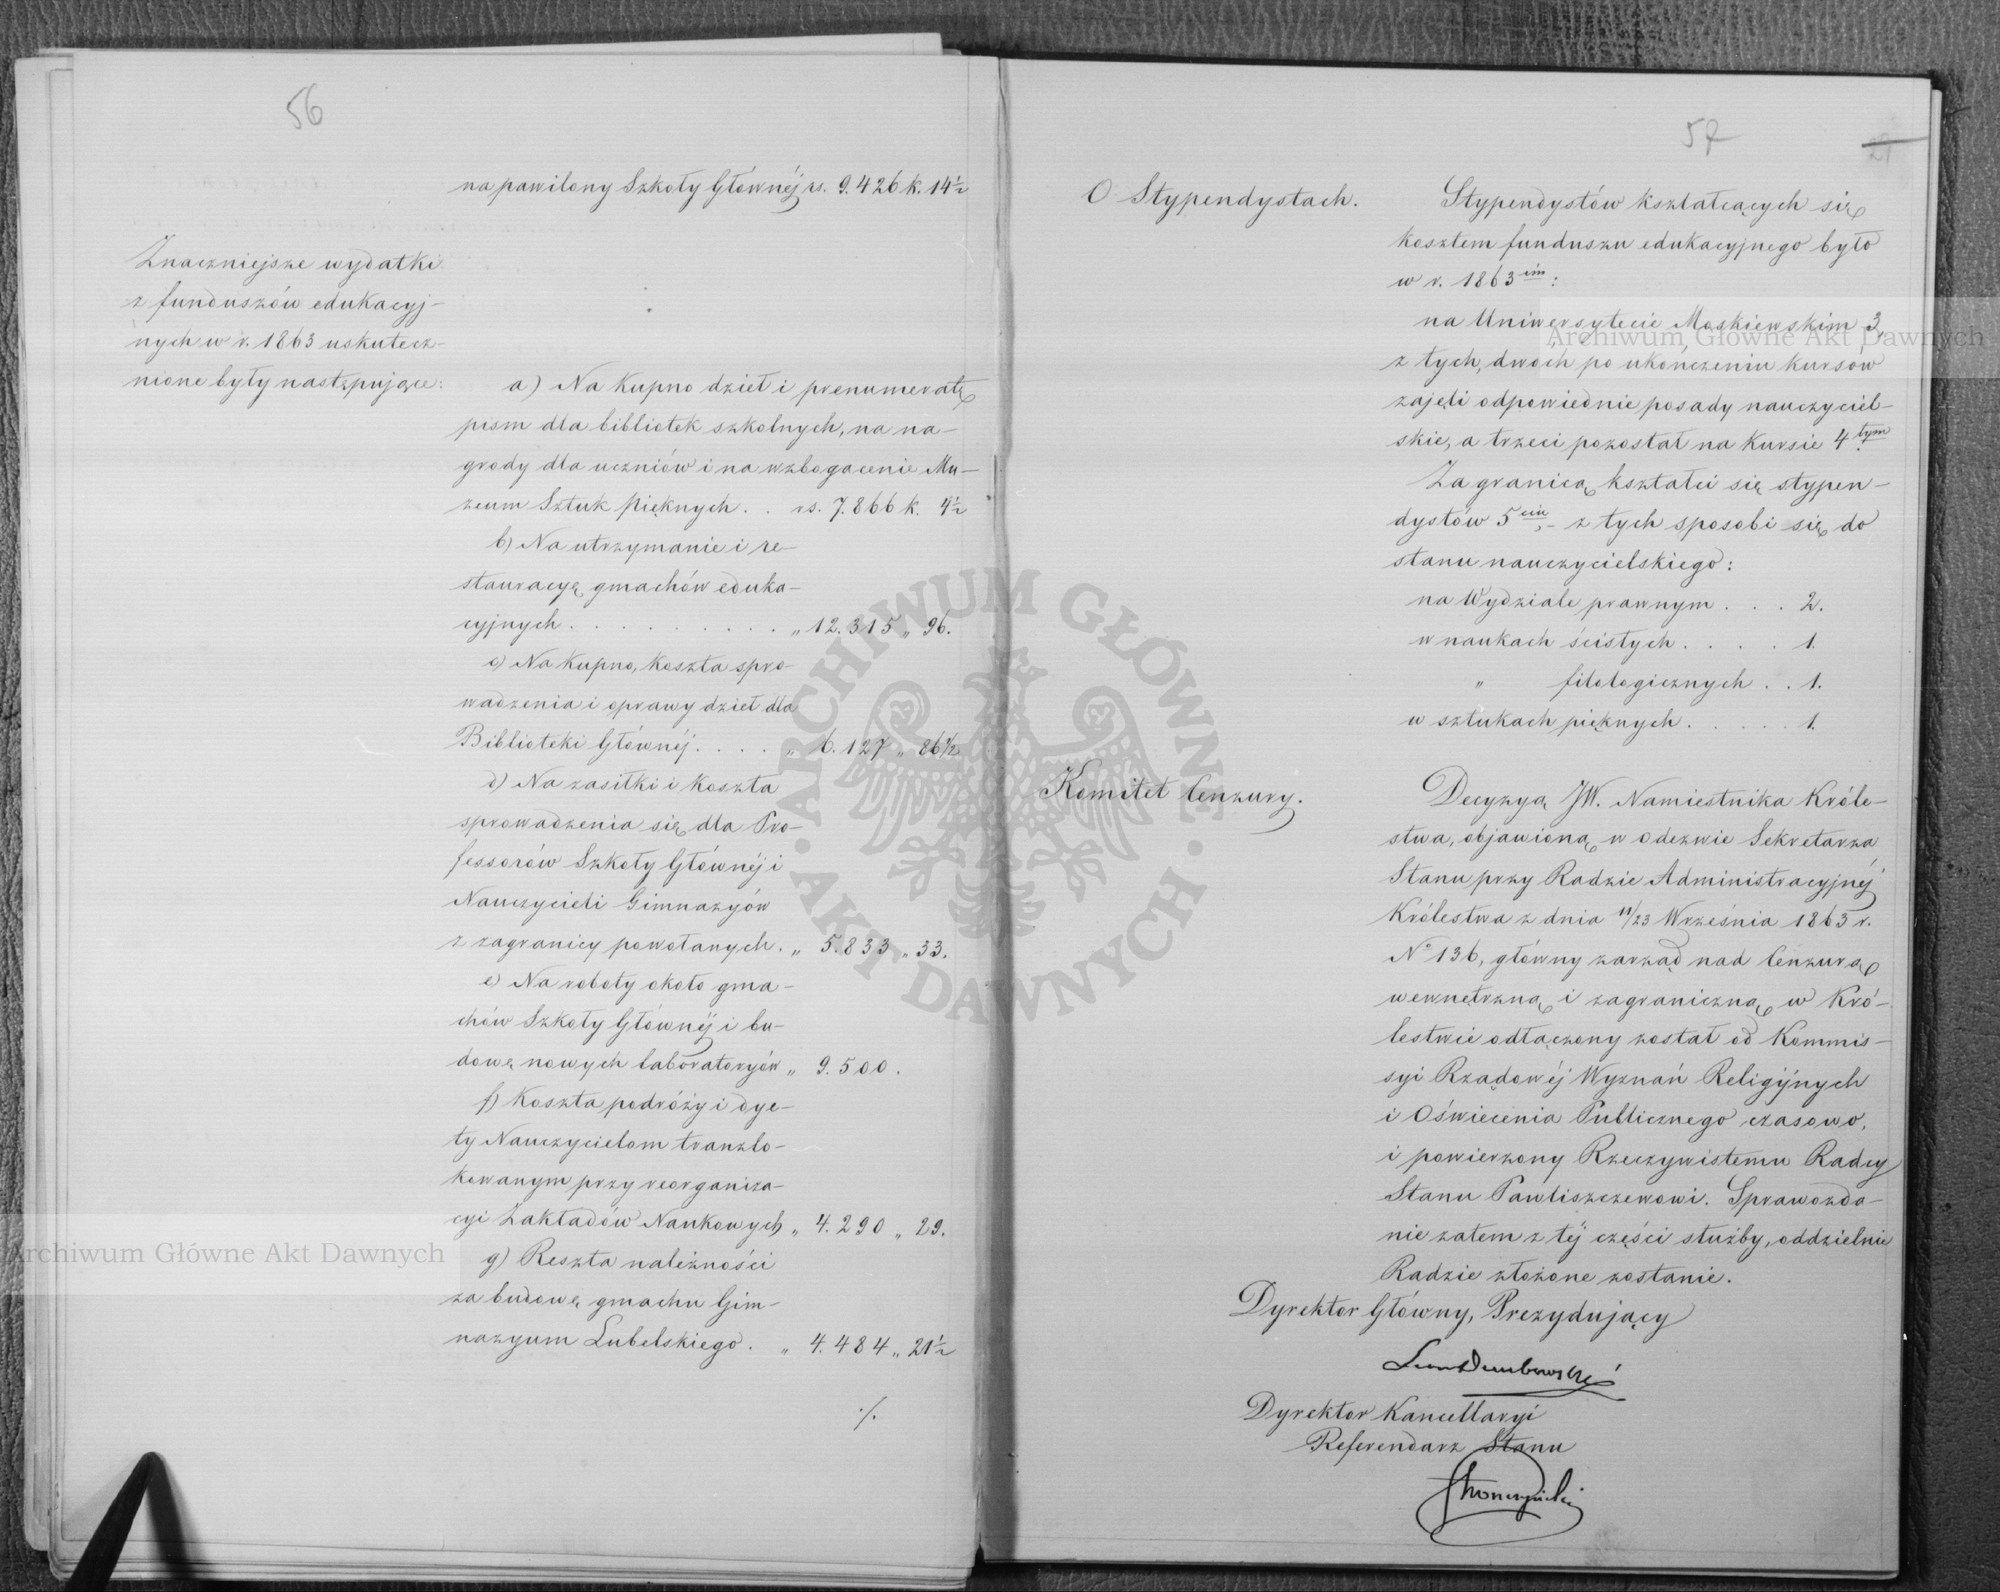 56
na pawilony Szkoły Głównéj rs. 9.426 k. 14½
Znaczniejsze wydatki
z funduszów edukacyj-
nych w r. 1863 uskutecz-
nione były następujące:
a) Na kupno dzieł i prenumeratę
pism dla bibliotek szkolnych, na na-
grody dla uczniów i na wzbogacenie Mu-
zeum Sztuk Pięknych . . rs. 7.866 k. 4½
b) Na utrzymanie i re-
stauracyę gmachów eduka-
cyjnych . . . . . . . . . „ 12.315 „ 96.
c) Na kupno, koszta spro-
wadzenia i oprawy dzieł dla
Biblioteki Głównéj . . . . „ 6.127 „ 86½
d) Na zasiłki i koszta
sprowadzenia się dla Pro-
fessorów Szkoły Głównéj i
Nauczycieli Gimnazyów
z zagranicy powołanych. „ 5.833 „ 33.
e) Na roboty około gma-
chów Szkoły Głównéj i bu-
dowę nowych laboratoryów „ 9.500.
f) Koszta podróży i dye-
ty Nauczycielom tranzlo-
kowanym przy reorganiza-
cyi Zakładów Naukowych „ 4.290 „ 29.
g) Reszta należności
za budowę gmachu Gim-
nazyum Lubelskiego. „ 4.484 „ 21½
./.
57
O Stypendystach.
Stypendystów kształcących się
kosztem funduszu edukacyjnego było
w r. 1863im:
na Uniwersytecie Moskiewskim 3,
z tych, dwóch po ukończeniu kursów
zajęli odpowiednie posady nauczyciel-
skie, a trzeci pozostał na kursie 4tym
Za granicą kształci się stypen-
dystów 5ciu, – z tych sposobi się do
stanu nauczycielskiego:
na Wydziale prawnym . . . 2.
w naukach ścisłych . . . . 1.
„ filologicznych . . 1.
w sztukach pięknych . . . . . 1.
Komitet Cenzury.
Decyzyą JW. Namiestnika Króle-
stwa, objawioną w odezwie Sekretarza
Stanu przy Radzie Administracyjnéj
Królestwa z dnia 11/23 Września 1863 r.
No 136, główny zarząd nad Cenzurą
wewnętrzną i zagraniczną w Kró-
lestwie odłączony został od Kommis-
syi Rządowéj Wyznań Religijnych
i Oświecenia Publicznego czasowo,
i powierzony Rzeczywistemu Radcy
Stanu Pawliszczewowi. Sprawozda-
nie zatem z téj części służby, oddzielnie
Radzie złożone zostanie.
Dyrektor Główny, Prezydujący
Dembowski
Dyrektor Kancellaryi
Referendarz Stanu
Archiwum Główne Akt Dawnych
Archiwum Główne Akt Dawnych
ARCHIWUM GŁÓWNE · AKT DAWNYCH ·